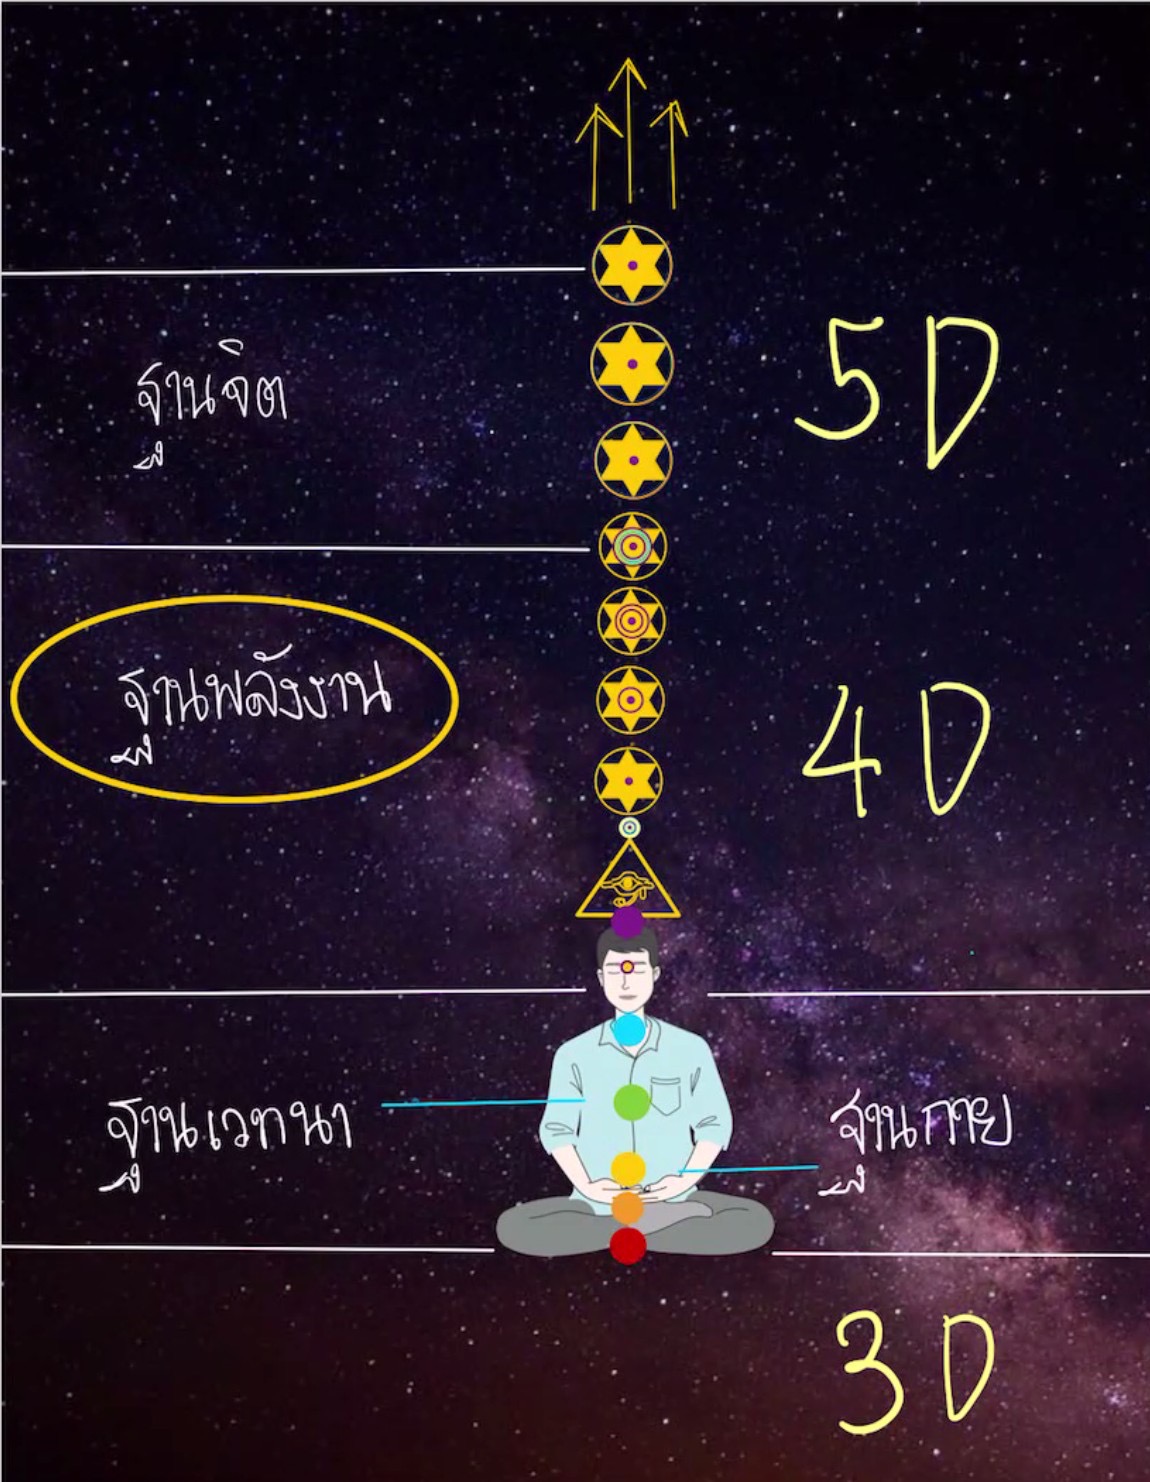 ฐานจิต
5D
ฐานพลังงาน
4D
ฐานเวทนา
ฐานกาย
3D